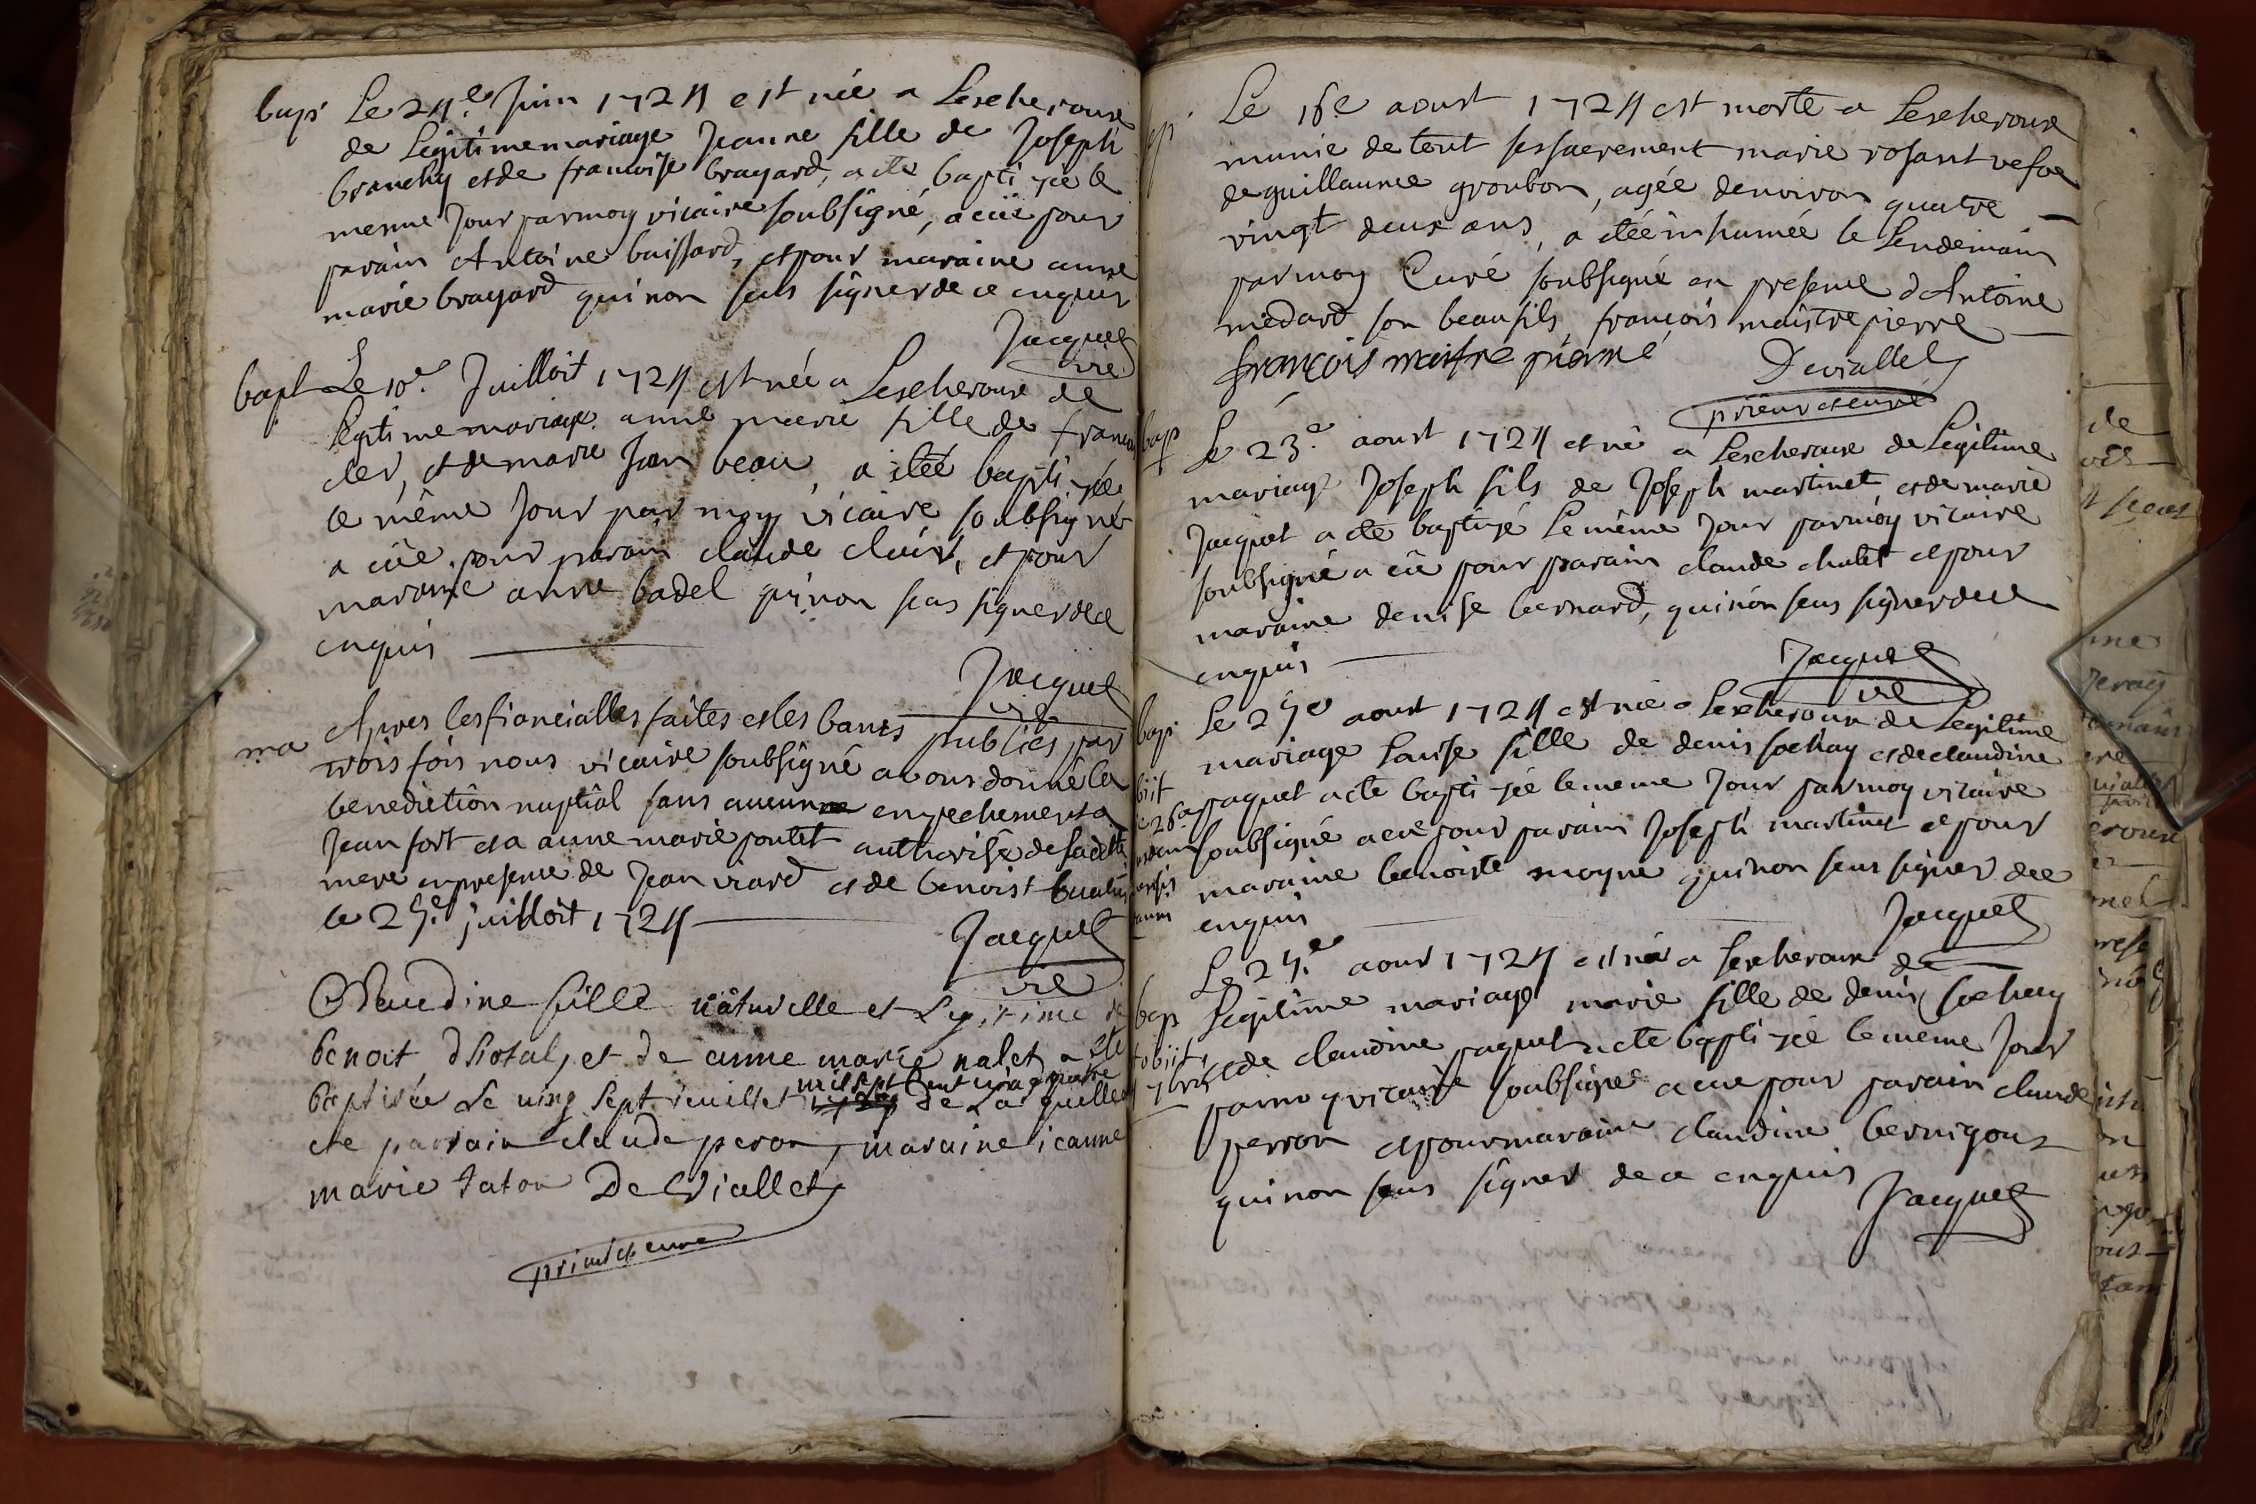 bapt Le 24.e Juin 1724 est née a Lescheroux
de Legitime mariage Jeanne fille de Joseph
branchy et de francoise brayard, a ete baptisée le
mesme Jour par moy vicaire soubsigné, a eüe pour
parain Antoine buissard, et pour maraine anne
marie brayard qui non sceus signer de ce enquis
Jacquet
vre
bapt Le 10.e Juilloit 1724 est née a Lescheroux de
Legitime mariage anne marie fille de francois
cler, et de marie Jan beau, a etée baptisée
le même Jour par moy vicaire soubsigné
a eüe pour parain claude clair, et pour
maraine anne badel qui non sceus signer de ce
enquis
Jacquet
vre
ma Apres les fiancialles faites et les bancs publiés par
trois fois nous vicaire soubsigné avons donné la
benediction nuptial sans aucun empechement a
Jean fort et a anne marie pontet authorisée de sadette
mere en presence de Jean viard et de benoist
le 25.e juilloit 1724
Jacquet
vre
Claudine fille nâturelle et Legitime de
benoit drotal, et de anne marie nalet a été
mil sept cent vingt quatre
baptisée Le ving sept ieuillet 1724 de La quelle a
ete parrain claude peron, maraine ieanne
marie taton De Viallet
prieur et curé
Le 16e aoust 1724 est morte a Lescheroux
munie de tout ses sacrement marie rosant vefve
de guillaume groubon, agée denviron quatre
vingt deux ans, a etée inhumée le Lendemain
par moy Curé soubsigné en presence d Antoine
medard son beaufils, françois maistrepierre
françois maitre pierre
Deviallet
prieur et curé
bap Le 23.e aoust 1724 est né a Lescheroux de Legitime
mariage Joseph fils de Joseph martinet, et de marie
Jacquet a ete baptisé Le même Jour par moy vicaire
soubsigné a eü pour parain claude chatet et pour
maraine denise bernard, qui non sceus signer de ce
enquis
Jacquet
vre
bap Le 25e aoust 1724 est née a Lescheroux de Legitime
mariage Louise fille de denis sochay et de claudine
paquet a ete baptisée le meme Jour par moy vicaire
soubsigné a eue pour parain Joseph martinet et pour
maraine benoiste moyne qui non sceus signer de ce
enquis
Jacquet
bap Le 25.e aoust 1724 est née a Lescheroux de
Legitime mariage marie fille de denis sochay
obiit et de claudine paquet a ete baptisée le meme Jour
par moy vicaire soubsigné a eue pour parain claude
perron et pour maraine claudine bernigoux
qui non sceus signer de ce enquis
Jacquet